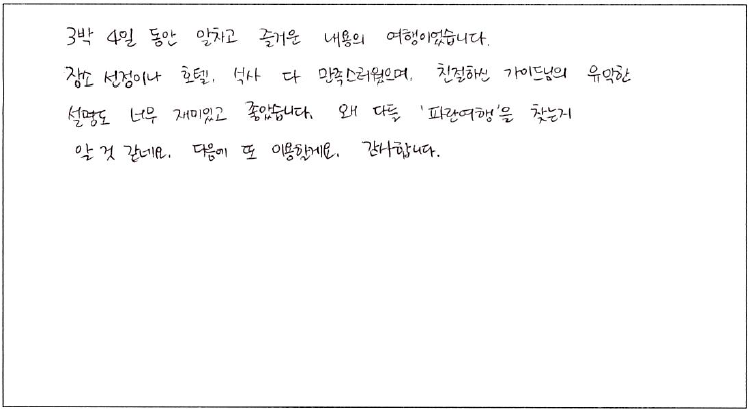 3박 4일 동안 알차고 즐거운 내용의 여행이었습니다.
장소 선정이나 호텔, 식사 다 만족스러웠으며, 친절하신 가이드님의 유익한
설명도 너무 재미있고 좋았습니다. 왜 다들 '파란여행'을 찾는지
알 것 같네요. 다음에 또 이용할게요. 감사합니다.